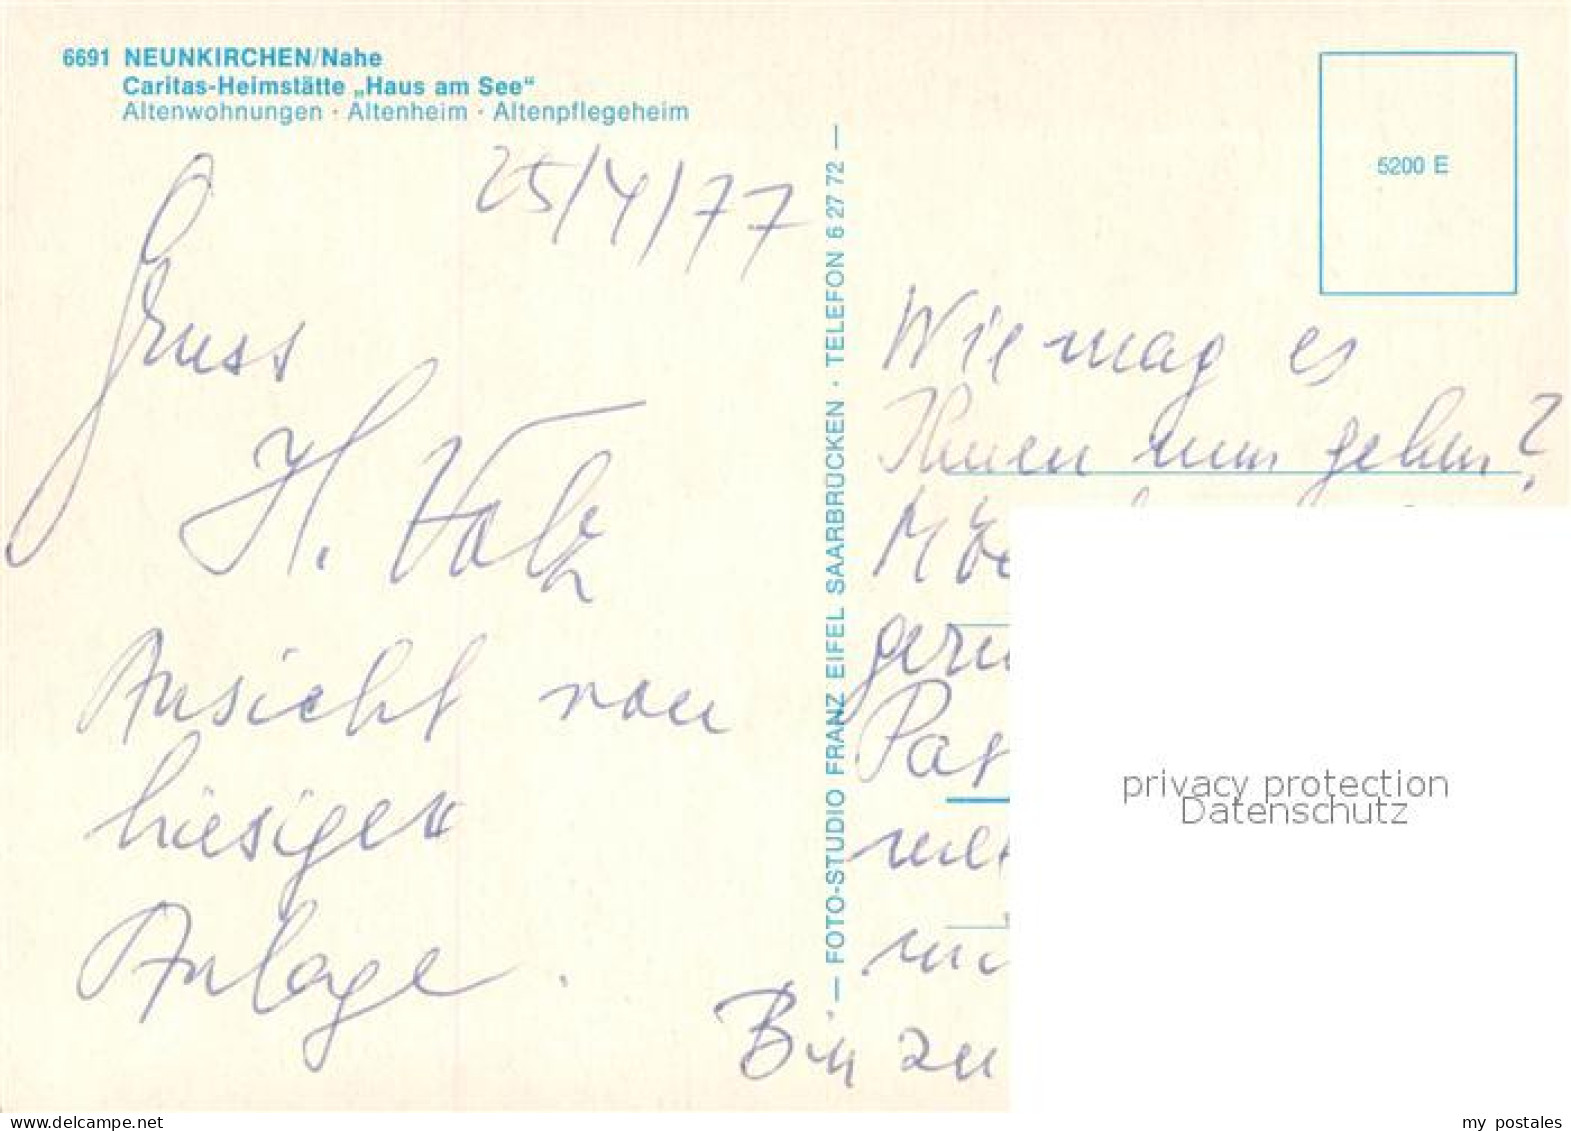 6691 NEUNKIRCHEN/Nahe
Caritas-Heimstätte „Haus am See“
Altenwohnungen · Altenheim · Altenpflegeheim
25/4/77
Gruss
H. Volz
Ansicht von
hiesiger
Anlage.
— FOTO-STUDIO FRANZ EIFEL SAARBRÜCKEN · TELEFON 6 27 72 —
5200 E
Wie mag es
Ihnen nun gehen?
Bin zu
privacy protection
Datenschutz
www.delcampe.net
my_postales